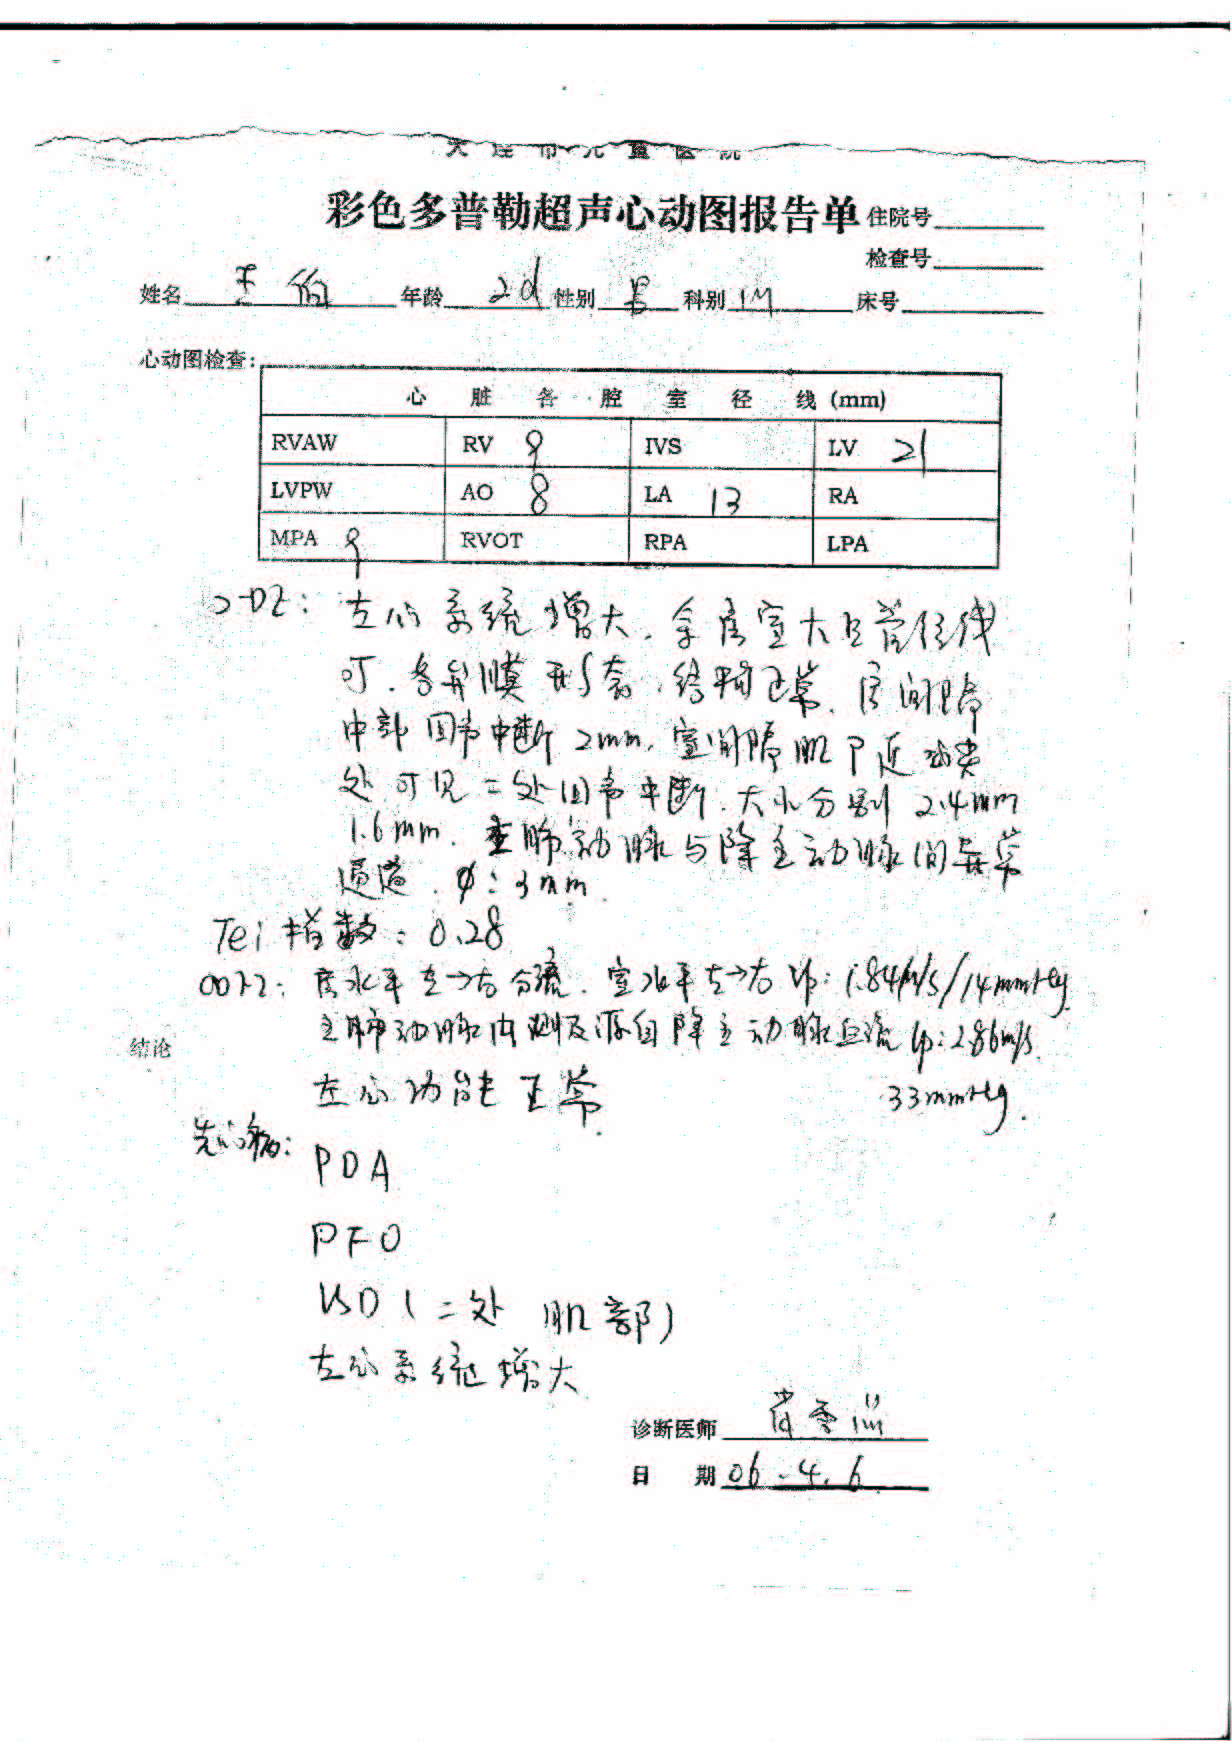 大连市儿童医院
彩色多普勒超声心动图报告单 住院号
检查号
姓名 王 年龄 2d 性别 男 科别 床号
心动图检查:
心脏各腔室径线(mm)
RVAW RV 9 IVS LV 21
LVPW AO 8 LA 13 RA
MPA 9 RVOT RPA LPA
2-DE: 左心系统增大. 余房室大血管径线
可. 各瓣膜形态. 结构正常. 房间隔
中部回声中断 2mm. 室间隔肌部近心尖
处可见二处回声中断. 大小分别 2.4mm
1.6mm. 主肺动脉与降主动脉间异常
通道. φ: 3mm.
Tei 指数: 0.28
房水平左→右分流. 室水平左→右 Vp: 1.84m/s/14mmHg
主肺动脉内测及源自降主动脉血流 Vp: 2.86m/s.
结论
左心功能正常 33mmHg.
先心病:
PDA
PFO
VSD (二处 肌部)
左心系统增大
诊断医师
日 期 06.4.6